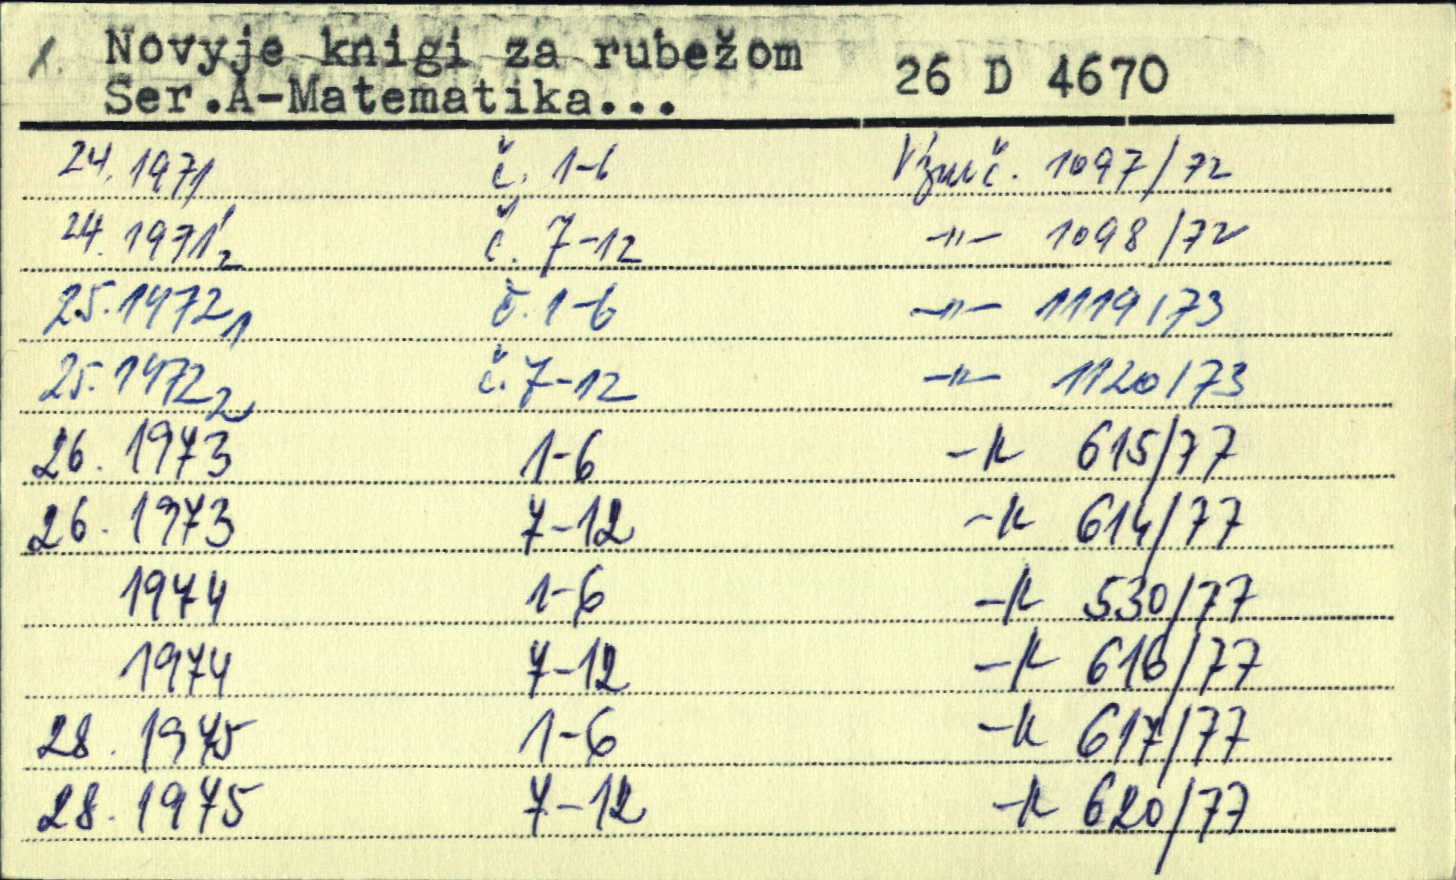 Novyje knigi za rubežom
Ser.A-Matematika...
26 D 4670
24. 1971 č. 1-6 1097/72
24. 1971 2 č. 7-12 -"- 1098/72
25. 1972 1 č. 1-6 -"- 1119/73
25. 1972 2 č. 7-12 -"- 1120/73
26. 1973 1-6 -"- 615/77
26. 1973 7-12 -"- 614/77
1974 1-6 -"- 530/77
1974 7-12 -"- 616/77
28. 1975 1-6 -"- 617/77
28. 1975 7-12 -"- 620/77